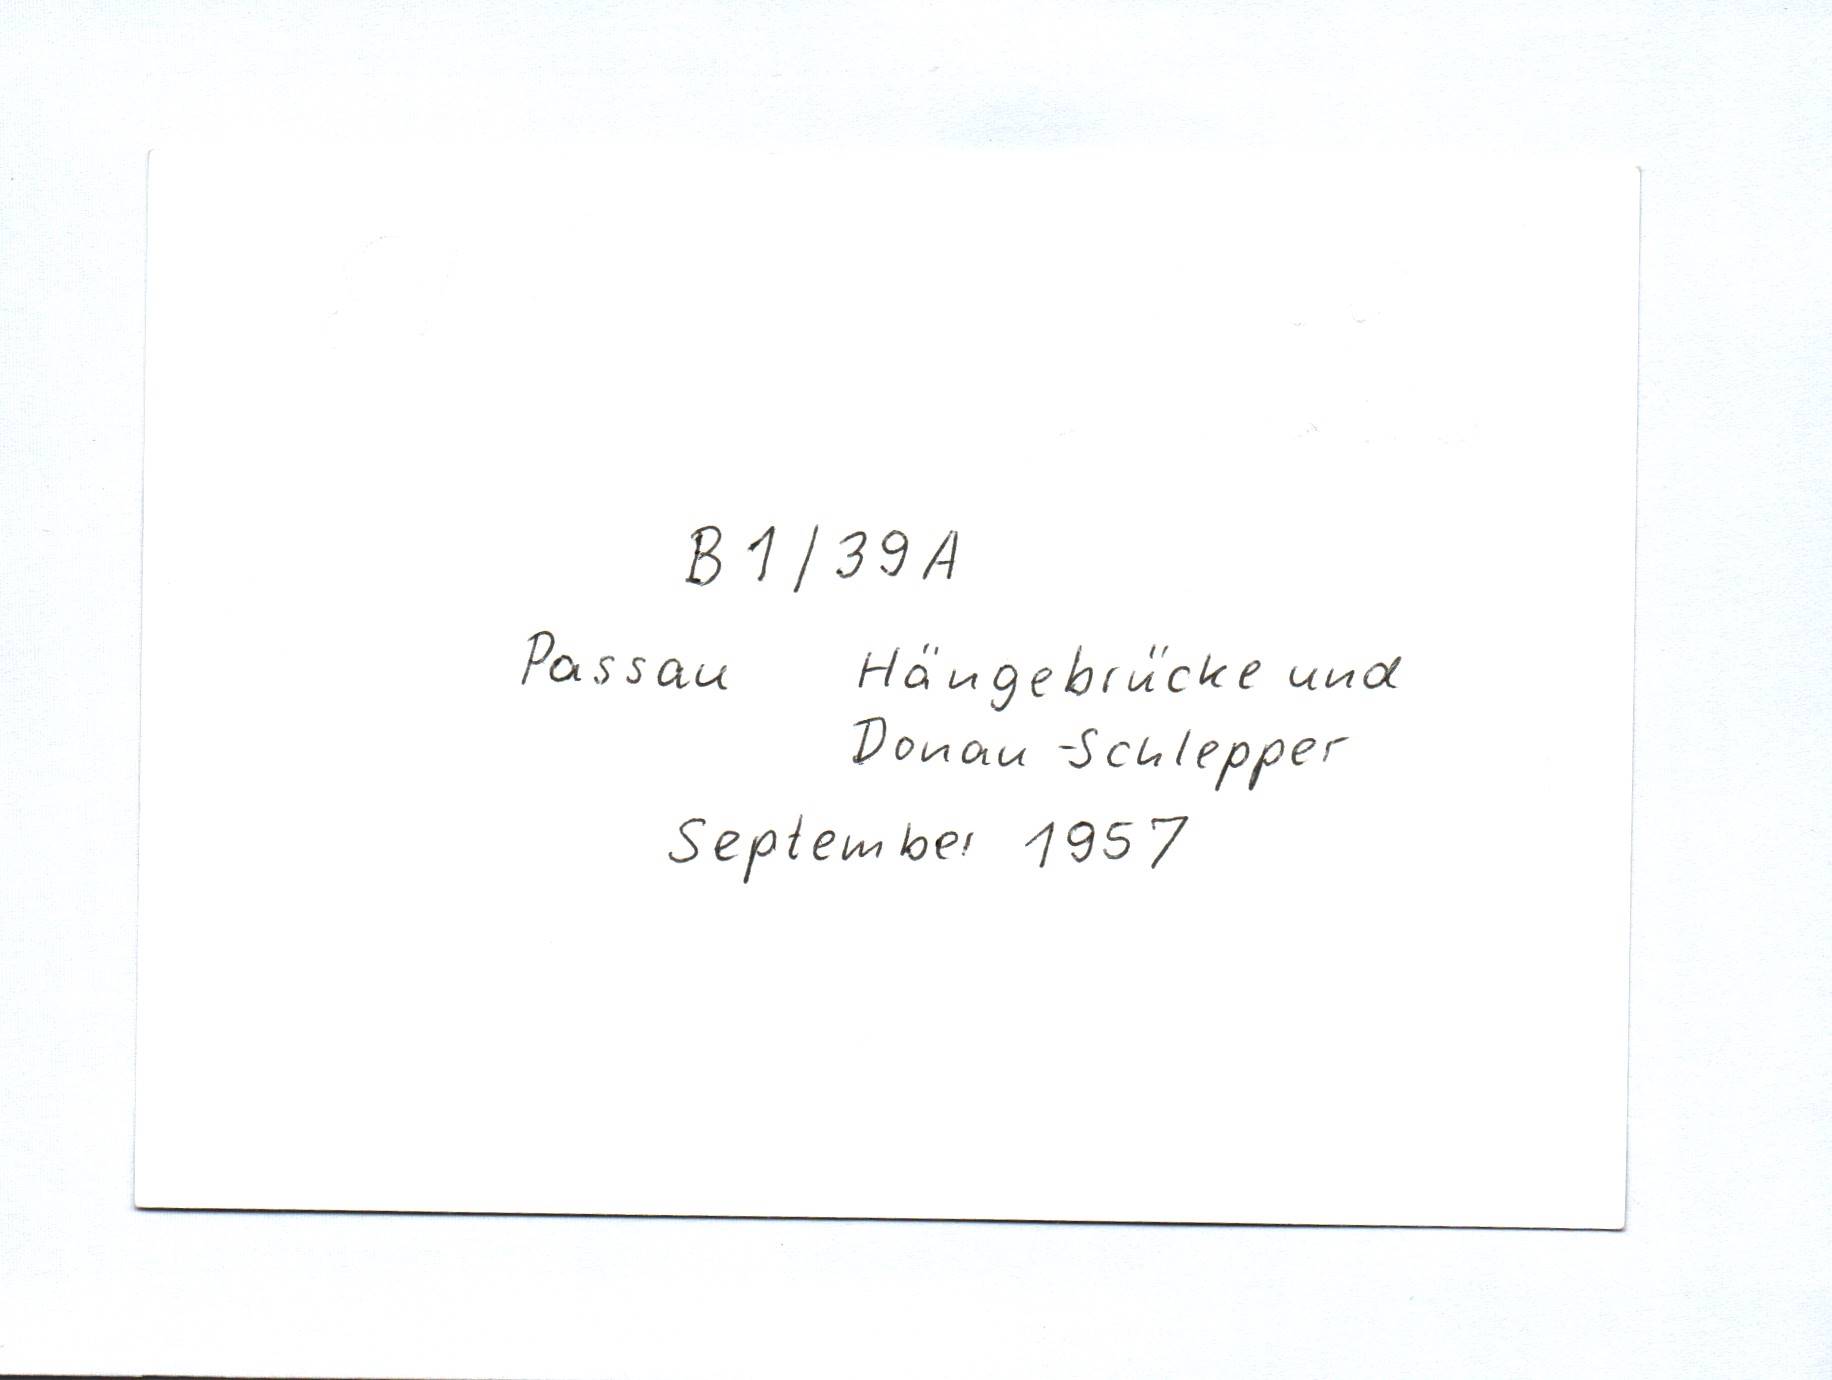 B1/39A
Passau Hängebrücke und
Donau-Schlepper
September 1957